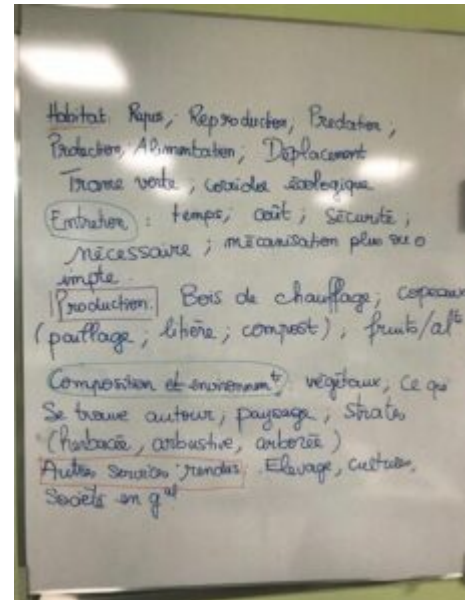 Habitat: Repos, Reproduction, Predation,
Protection, Alimentation, Déplacement
Trame verte, corridor écologique
Entretien : temps, coût, sécurité,
nécessaire ; mécanisation plus ou
impte.
Production. Bois de chauffage, copeaux
(paillage, litière, compost), fruits/al^t
Composition et environnem^t: végétaux, ce qui
se trouve autour, paysage, strates
(herbacée, arbustive, arborée)
Autres services rendus. Elevage, cultures,
Société en g^al